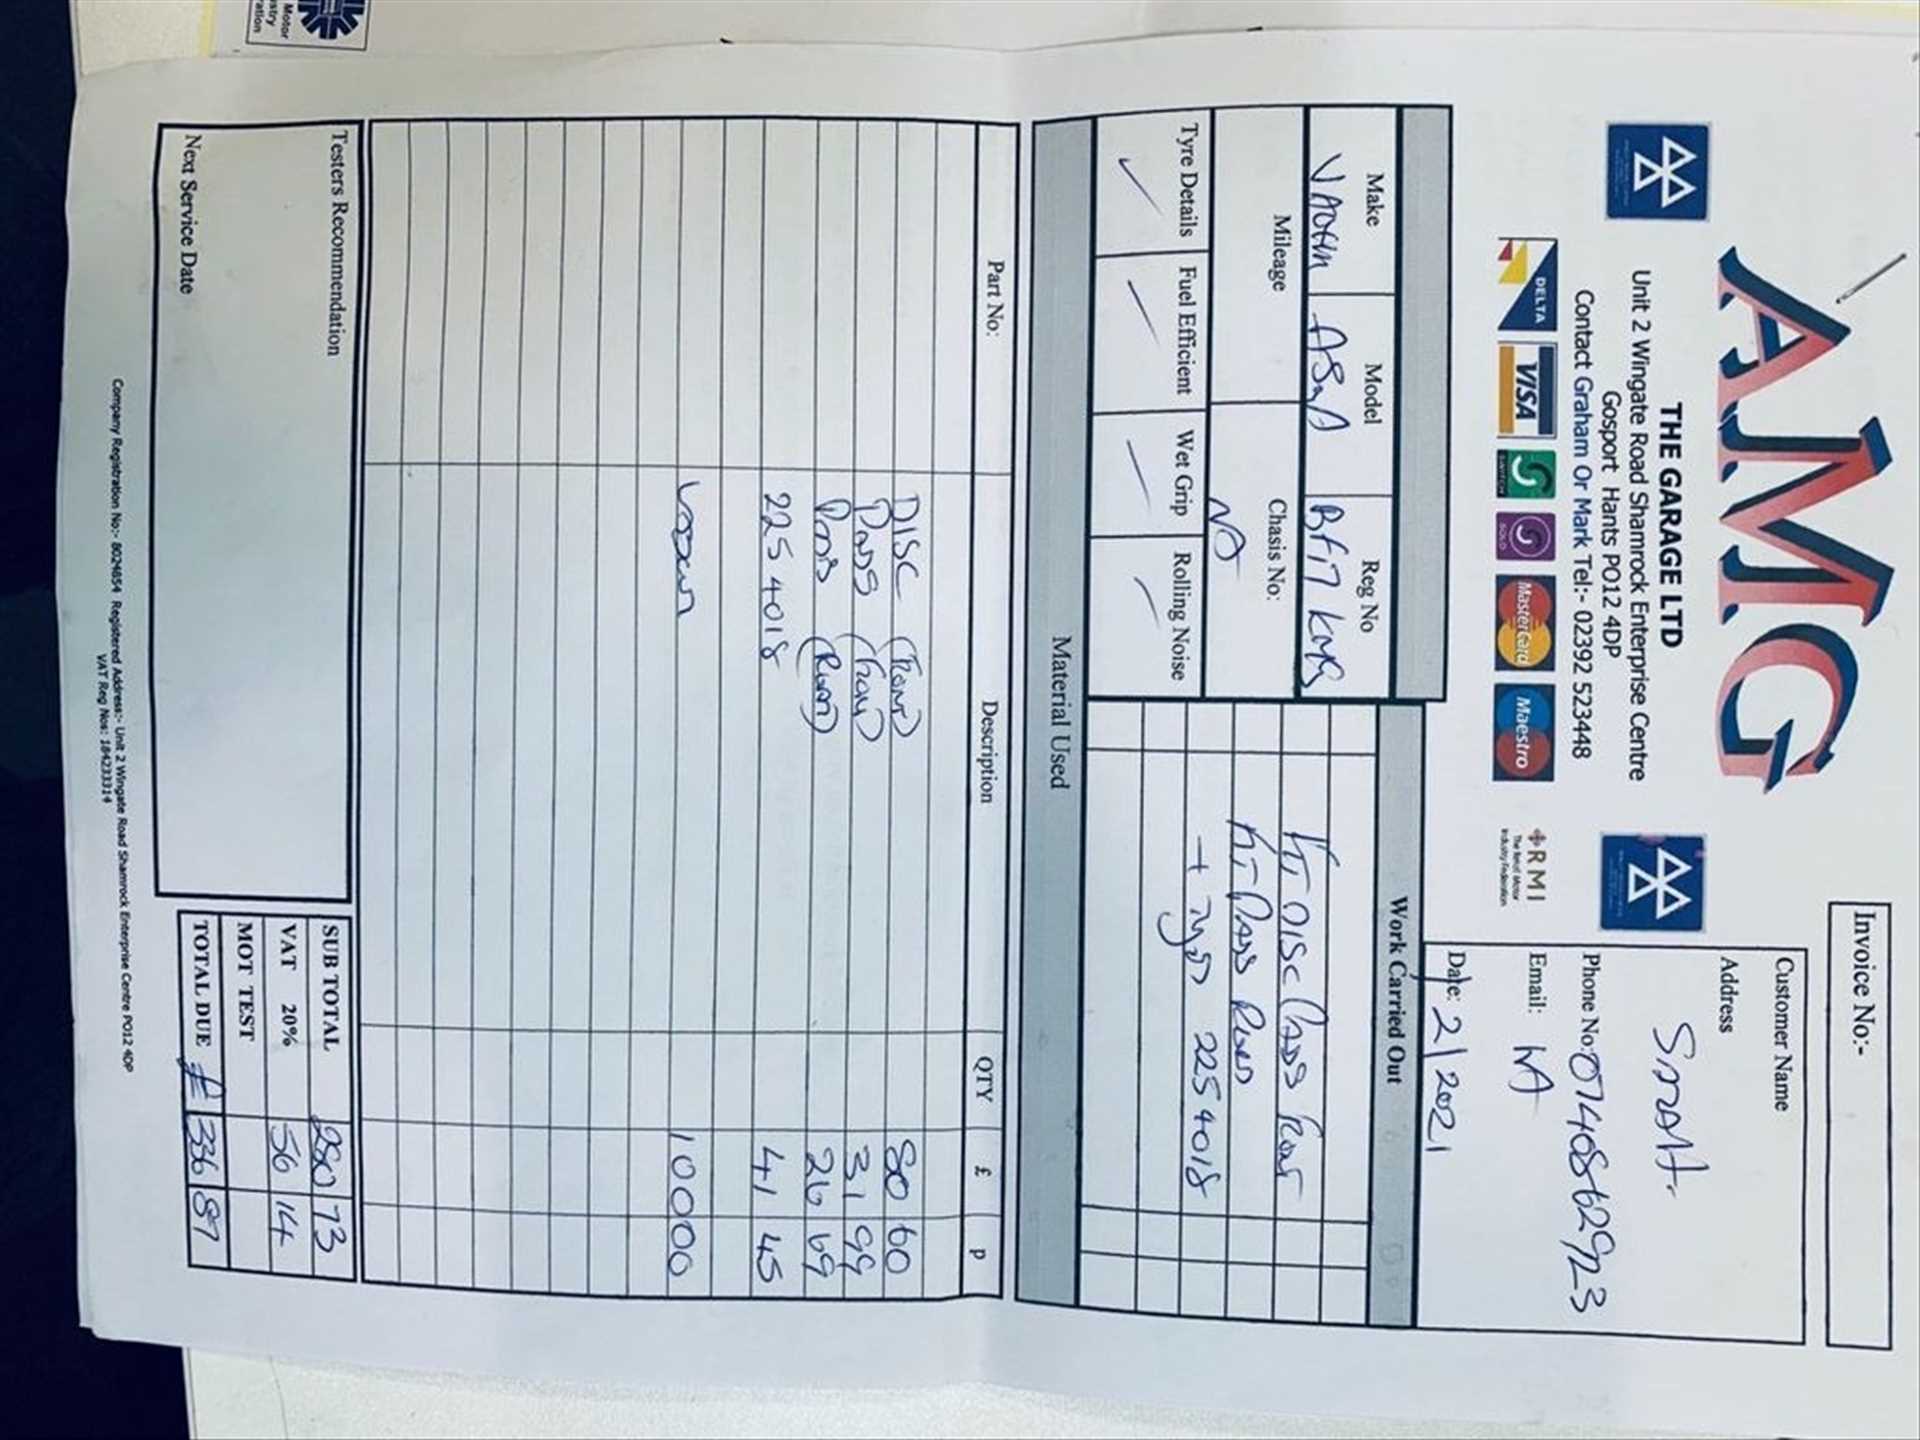 AMG
Invoice No:-
THE GARAGE LTD
Unit 2 Wingate Road Shamrock Enterprise Centre
Gosport Hants PO12 4DP
Contact Graham Or Mark Tel:- 02392 523448
DELTA VISA SWITCH SOLO MasterCard Maestro
RMI
The Retail Motor
Industry Federation
Customer Name
Address
Phone No: 07408862923
Email: NA
Date: 2/2021
Make Model Reg No
BF17
Mileage Chasis No:
Tyre Details Fuel Efficient Wet Grip Rolling Noise
Work Carried Out
DISC Pads Front
Pads
+ 2254018
Material Used
Part No: Description QTY £ p
DISC (Front) 80 60
Pads (Front) 31 99
Pads (Rear) 26 69
2254018 41 45
100 00
Testers Recommendation
Next Service Date
SUB TOTAL 280 73
VAT 20% 56 14
MOT TEST
TOTAL DUE £ 336 87
Company Registration No:- 8024854 Registered Address:- Unit 2 Wingate Road Shamrock Enterprise Centre PO12 4DP
VAT Reg Nos: 184233314
Motor
stry
ration